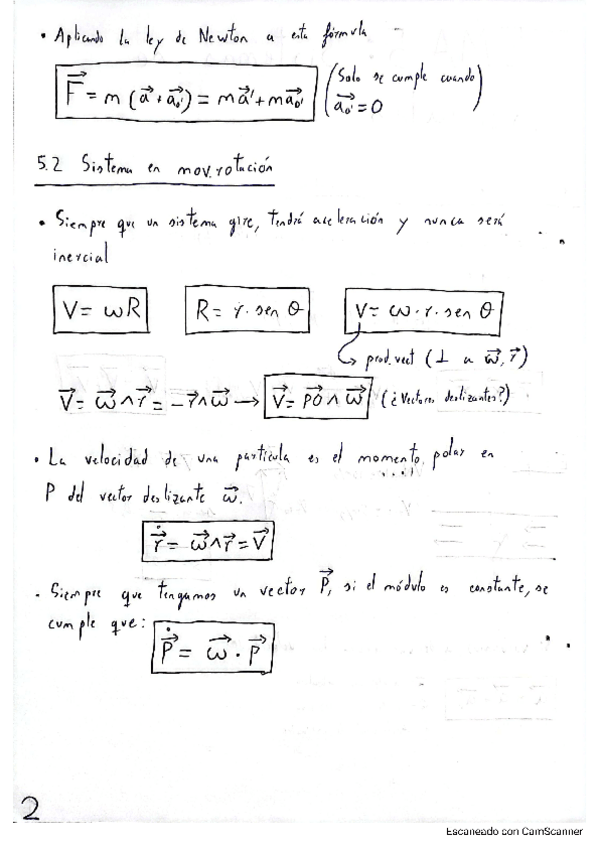 • Aplicando la ley de Newton a esta fórmula
F⃗ = m (a⃗' + a⃗₀') = m a⃗' + m a⃗₀' (Solo se cumple cuando
a⃗₀' = 0)
5.2 Sistema en mov. rotación
• Siempre que un sistema gire, tendrá aceleración y nunca será
inercial
V = ωR R = r · sen θ V = ω · r · sen θ
prod. vect (⊥ a ω⃗, r⃗)
V⃗ = ω⃗ ∧ r⃗ = -r⃗ ∧ ω⃗ → V⃗ = PO⃗ ∧ ω⃗ (¿Vectores deslizantes?)
• La velocidad de una partícula es el momento polar en
P del vector deslizante ω⃗.
ṙ⃗ = ω⃗ ∧ r⃗ = V⃗
• Siempre que tengamos un vector P⃗, si el módulo es constante, se
cumple que:
Ṗ⃗ = ω⃗ · P⃗
2
Escaneado con CamScanner